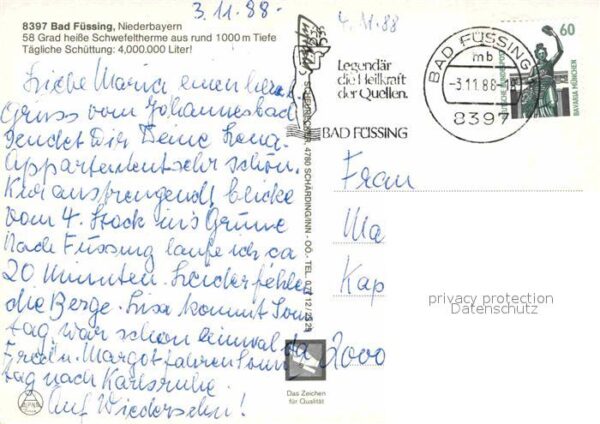 3.11.88-
4.11.88
8397 Bad Füssing, Niederbayern
58 Grad heiße Schwefeltherme aus rund 1000 m Tiefe
Tägliche Schüttung: 4,000.000 Liter!
Liebe Maria einen herzl
Gruss vom Johannesbad
sendet Dir Deine
Appartement sehr schön.
Kur anstrengend, blicke
vom 4. Stock ins Grüne
Nach Füssing laufe ich ca
20 Minuten. Leider fehlen
die Berge. Lisa kommt Sonn
tag, war schon einmal da
Fredln. Margot fahren Sonn
tag nach Karlsruhe.
Auf Wiedersehn!
Legendär
die Heilkraft
der Quellen.
BAD FÜSSING
BAD FÜSSING
mb
-3.11.88-
8397
60
DEUTSCHE BUNDESPOST
BAVARIA MÜNCHEN
4780 SCHÄRDING/INN - OÖ. - TEL.
Frau
Ma
Kap
2000
privacy protection
Datenschutz
Das Zeichen
für Qualität